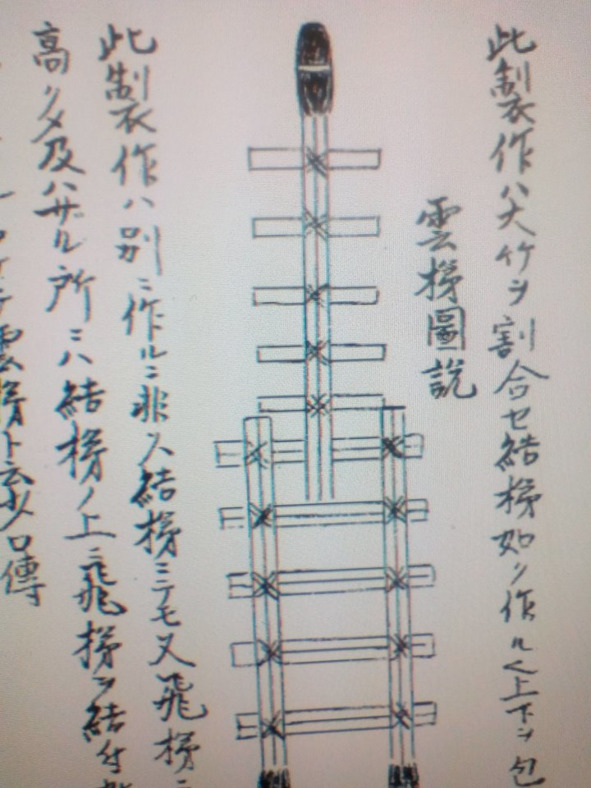 此製作ハ大竹ヲ割合セ結梯如ク作ルベ上下ヲ包
雲梯圖説
此製作ハ別ニ作ルニ非ス結梯ニテモ又飛梯ニ
高クメ及ハザル所ニハ結梯ノ上ニ飛梯ヲ結付
雲梯ト云フ口傳